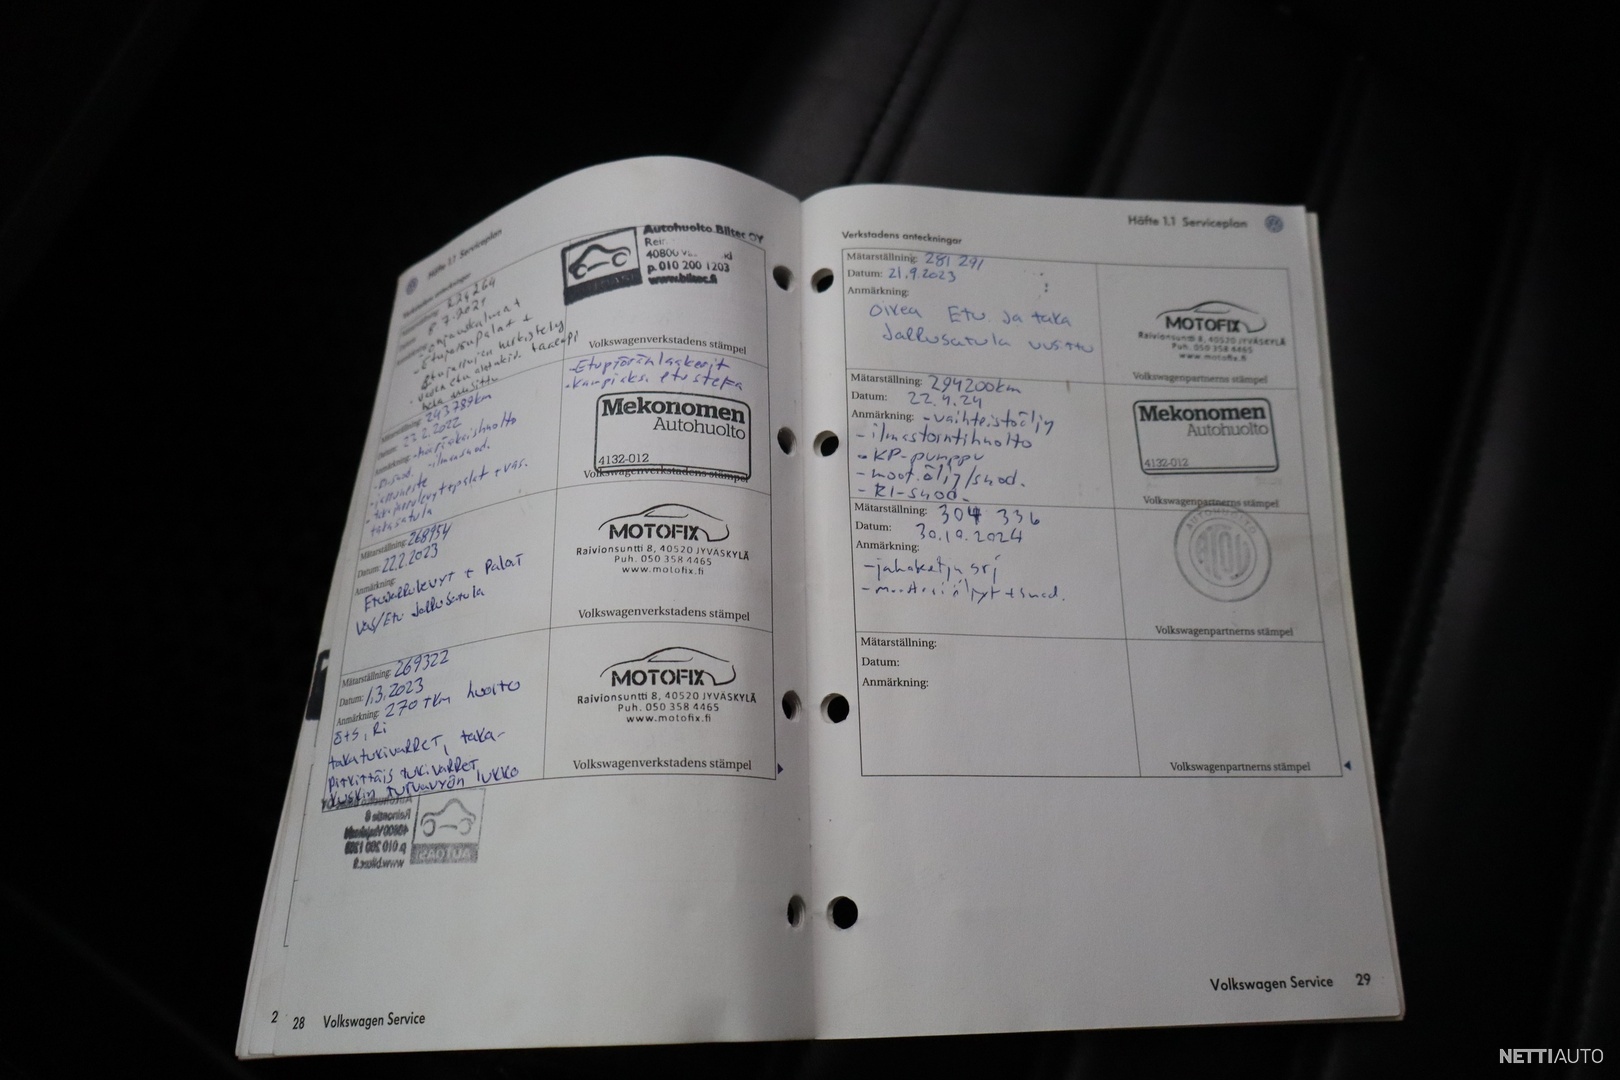 Häfte 1.1 Serviceplan
Verkstadens anteckningar
Autohuolto Bilsec OY
40800
p. 010 200 1203
www.bilsec.fi
8.7.2021
Volkswagenverkstadens stämpel
-Etupyöränlaakerit
-kampiaks. etu steka
Mätarställning: 243789km
Datum: 22.2.2022
Anmärkning:
-ilmasuod.
-jarruneste
takasatula
Mekonomen
Autohuolto
4132-012
Volkswagenverkstadens stämpel
Mätarställning: 268954
Datum: 22.2.2023
Anmärkning:
Etujarrulevyt + Palat
Vas/Etu Jarrusatula
MOTOFIX
Raivionsuntti 8, 40520 JYVÄSKYLÄ
Puh. 050 358 4465
www.motofix.fi
Volkswagenverkstadens stämpel
Mätarställning: 269322
Datum: 1.3.2023
Anmärkning: 270 tkm huolto
ö+s, Ri
takatukivarret, taka-
pitkittäis tukivarret
kuskin turvavyön lukko
MOTOFIX
Raivionsuntti 8, 40520 JYVÄSKYLÄ
Puh. 050 358 4465
www.motofix.fi
Volkswagenverkstadens stämpel
2
28 Volkswagen Service
Häfte 1.1 Serviceplan
Verkstadens anteckningar
Mätarställning: 281 291
Datum: 21.9.2023
Anmärkning:
Oikea Etu. ja taka
Jarrusatula uusittu
MOTOFIX
Raivionsuntti 8, 40520 JYVÄSKYLÄ
Puh. 050 358 4465
www.motofix.fi
Volkswagenpartnerns stämpel
Mätarställning: 294200km
Datum: 22.4.24
Anmärkning: -vaihteistoöljy
-ilmastointihuolto
-KP-pumppu
-moot.öljy/suod.
-RI-suod.
Mekonomen
Autohuolto
4132-012
Volkswagenpartnerns stämpel
Mätarställning: 304 336
Datum: 30.10.2024
Anmärkning:
-jakoketju srj
-moottoriöljyt + suod.
AUTOHUOLTO
Volkswagenpartnerns stämpel
Mätarställning:
Datum:
Anmärkning:
Volkswagenpartnerns stämpel
Volkswagen Service 29
NETTIAUTO